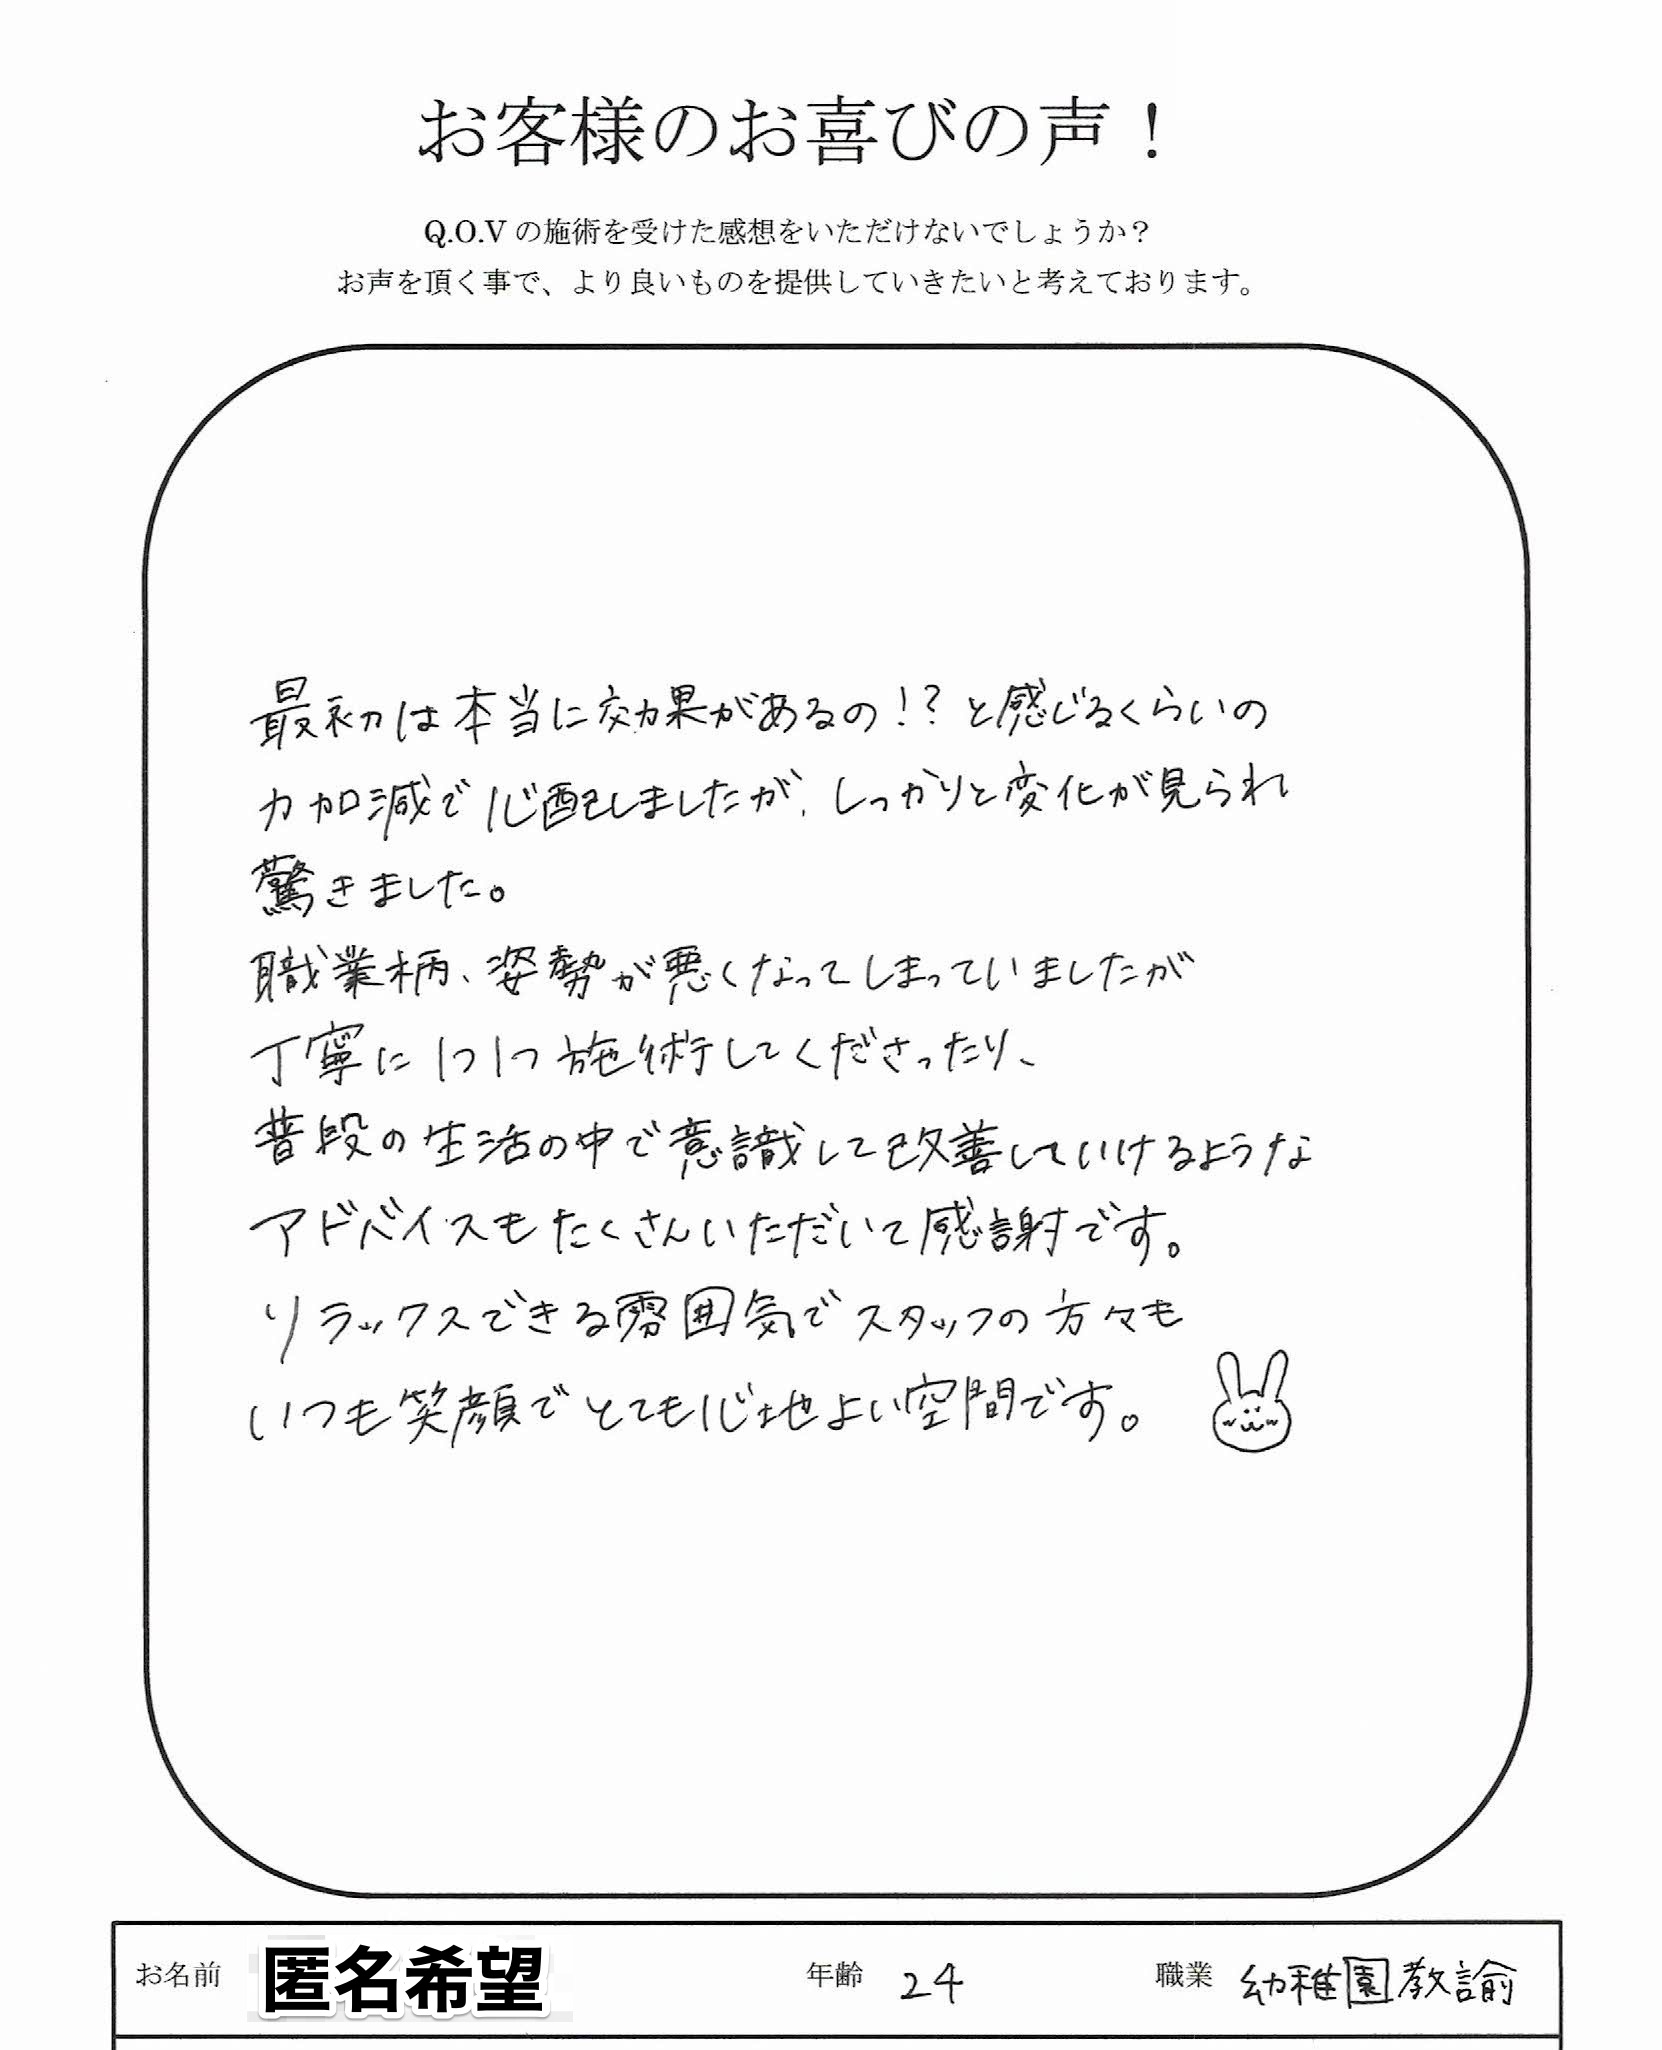 お客様のお喜びの声！
Q.O.Vの施術を受けた感想をいただけないでしょうか？
お声を頂く事で、より良いものを提供していきたいと考えております。
最初は本当に効果があるの!?と感じるくらいの
力加減で心配しましたが、しっかりと変化が見られ
驚きました。
職業柄、姿勢が悪くなってしまっていましたが
丁寧に1つ1つ施術してくださったり、
普段の生活の中で意識して改善していけるような
アドバイスもたくさんいただいて感謝です。
リラックスできる雰囲気でスタッフの方々も
いつも笑顔でとても心地よい空間です。
お名前 匿名希望 年齢 24 職業 幼稚園教諭